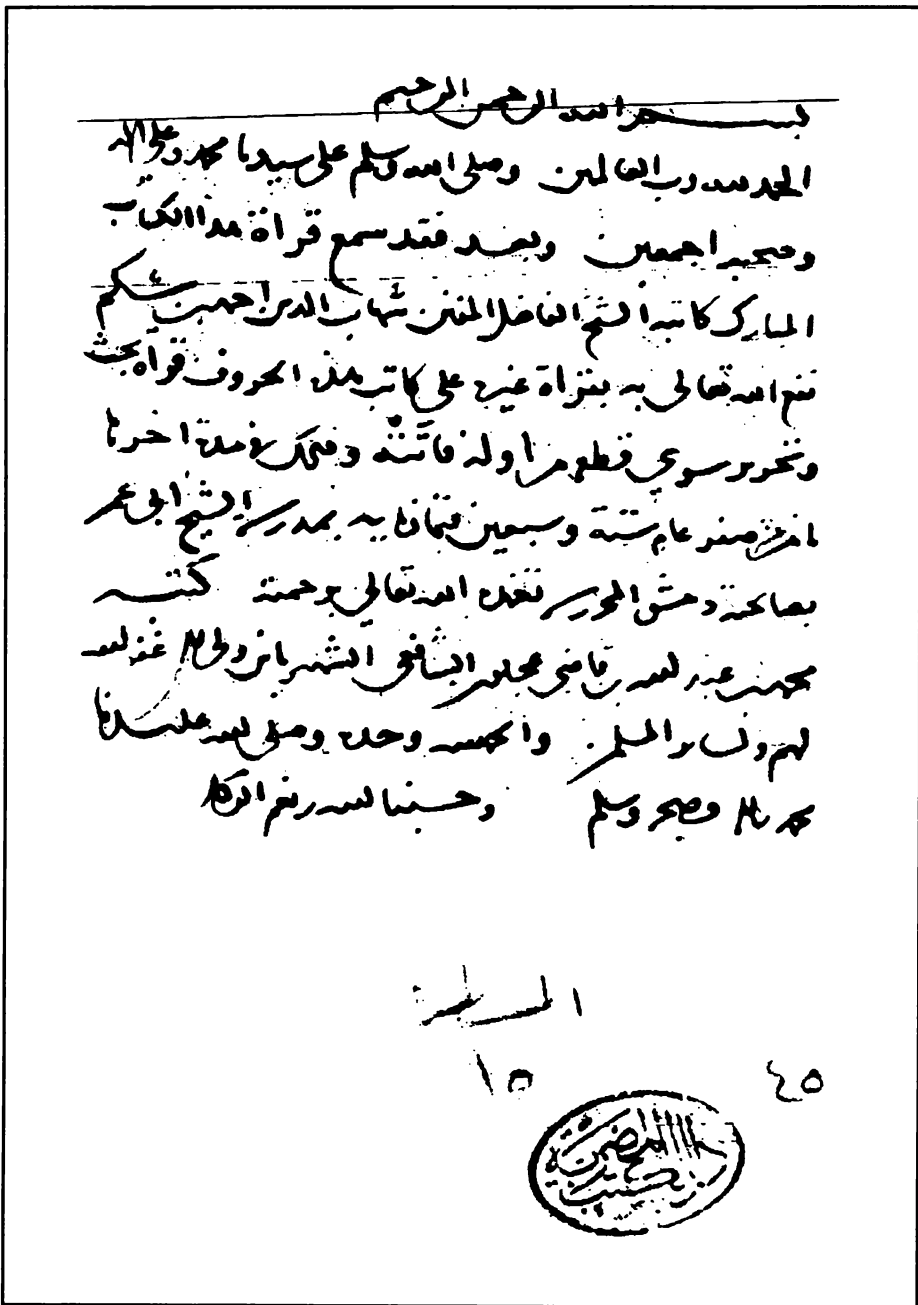 بسم الله الرحمن الرحيم
الحمد لله رب العالمين وصلى الله وسلم على سيدنا محمد وعلى اله
وصحبه اجمعين وبعد فقد سمع قراة هذا الكتاب
المبارك كاتبه الشيخ الفاضل المفنن شهاب الدين احمد بن شكم
نفع الله تعالى به بقراة غيره على كاتب هذه الحروف قراة بحث
وتحرير سوى قطعة من اوله فاتته وذلك في مدة اخرها
صفر عام ستة وسبعين وثمانمايه بمدرسة الشيخ ابي عمر
بصالحية دمشق المحروسة تغمده الله تعالى برحمته كتبه
محمد بن عبد الله بن قاضي عجلون الشافعي الشهير بابن ولي غفر الله
لهم ولساير المسلمين والحمد لله وحده وصلى الله على سيدنا
محمد واله وصحبه وسلم وحسبنا الله ونعم الوكيل
١٥
٤٥